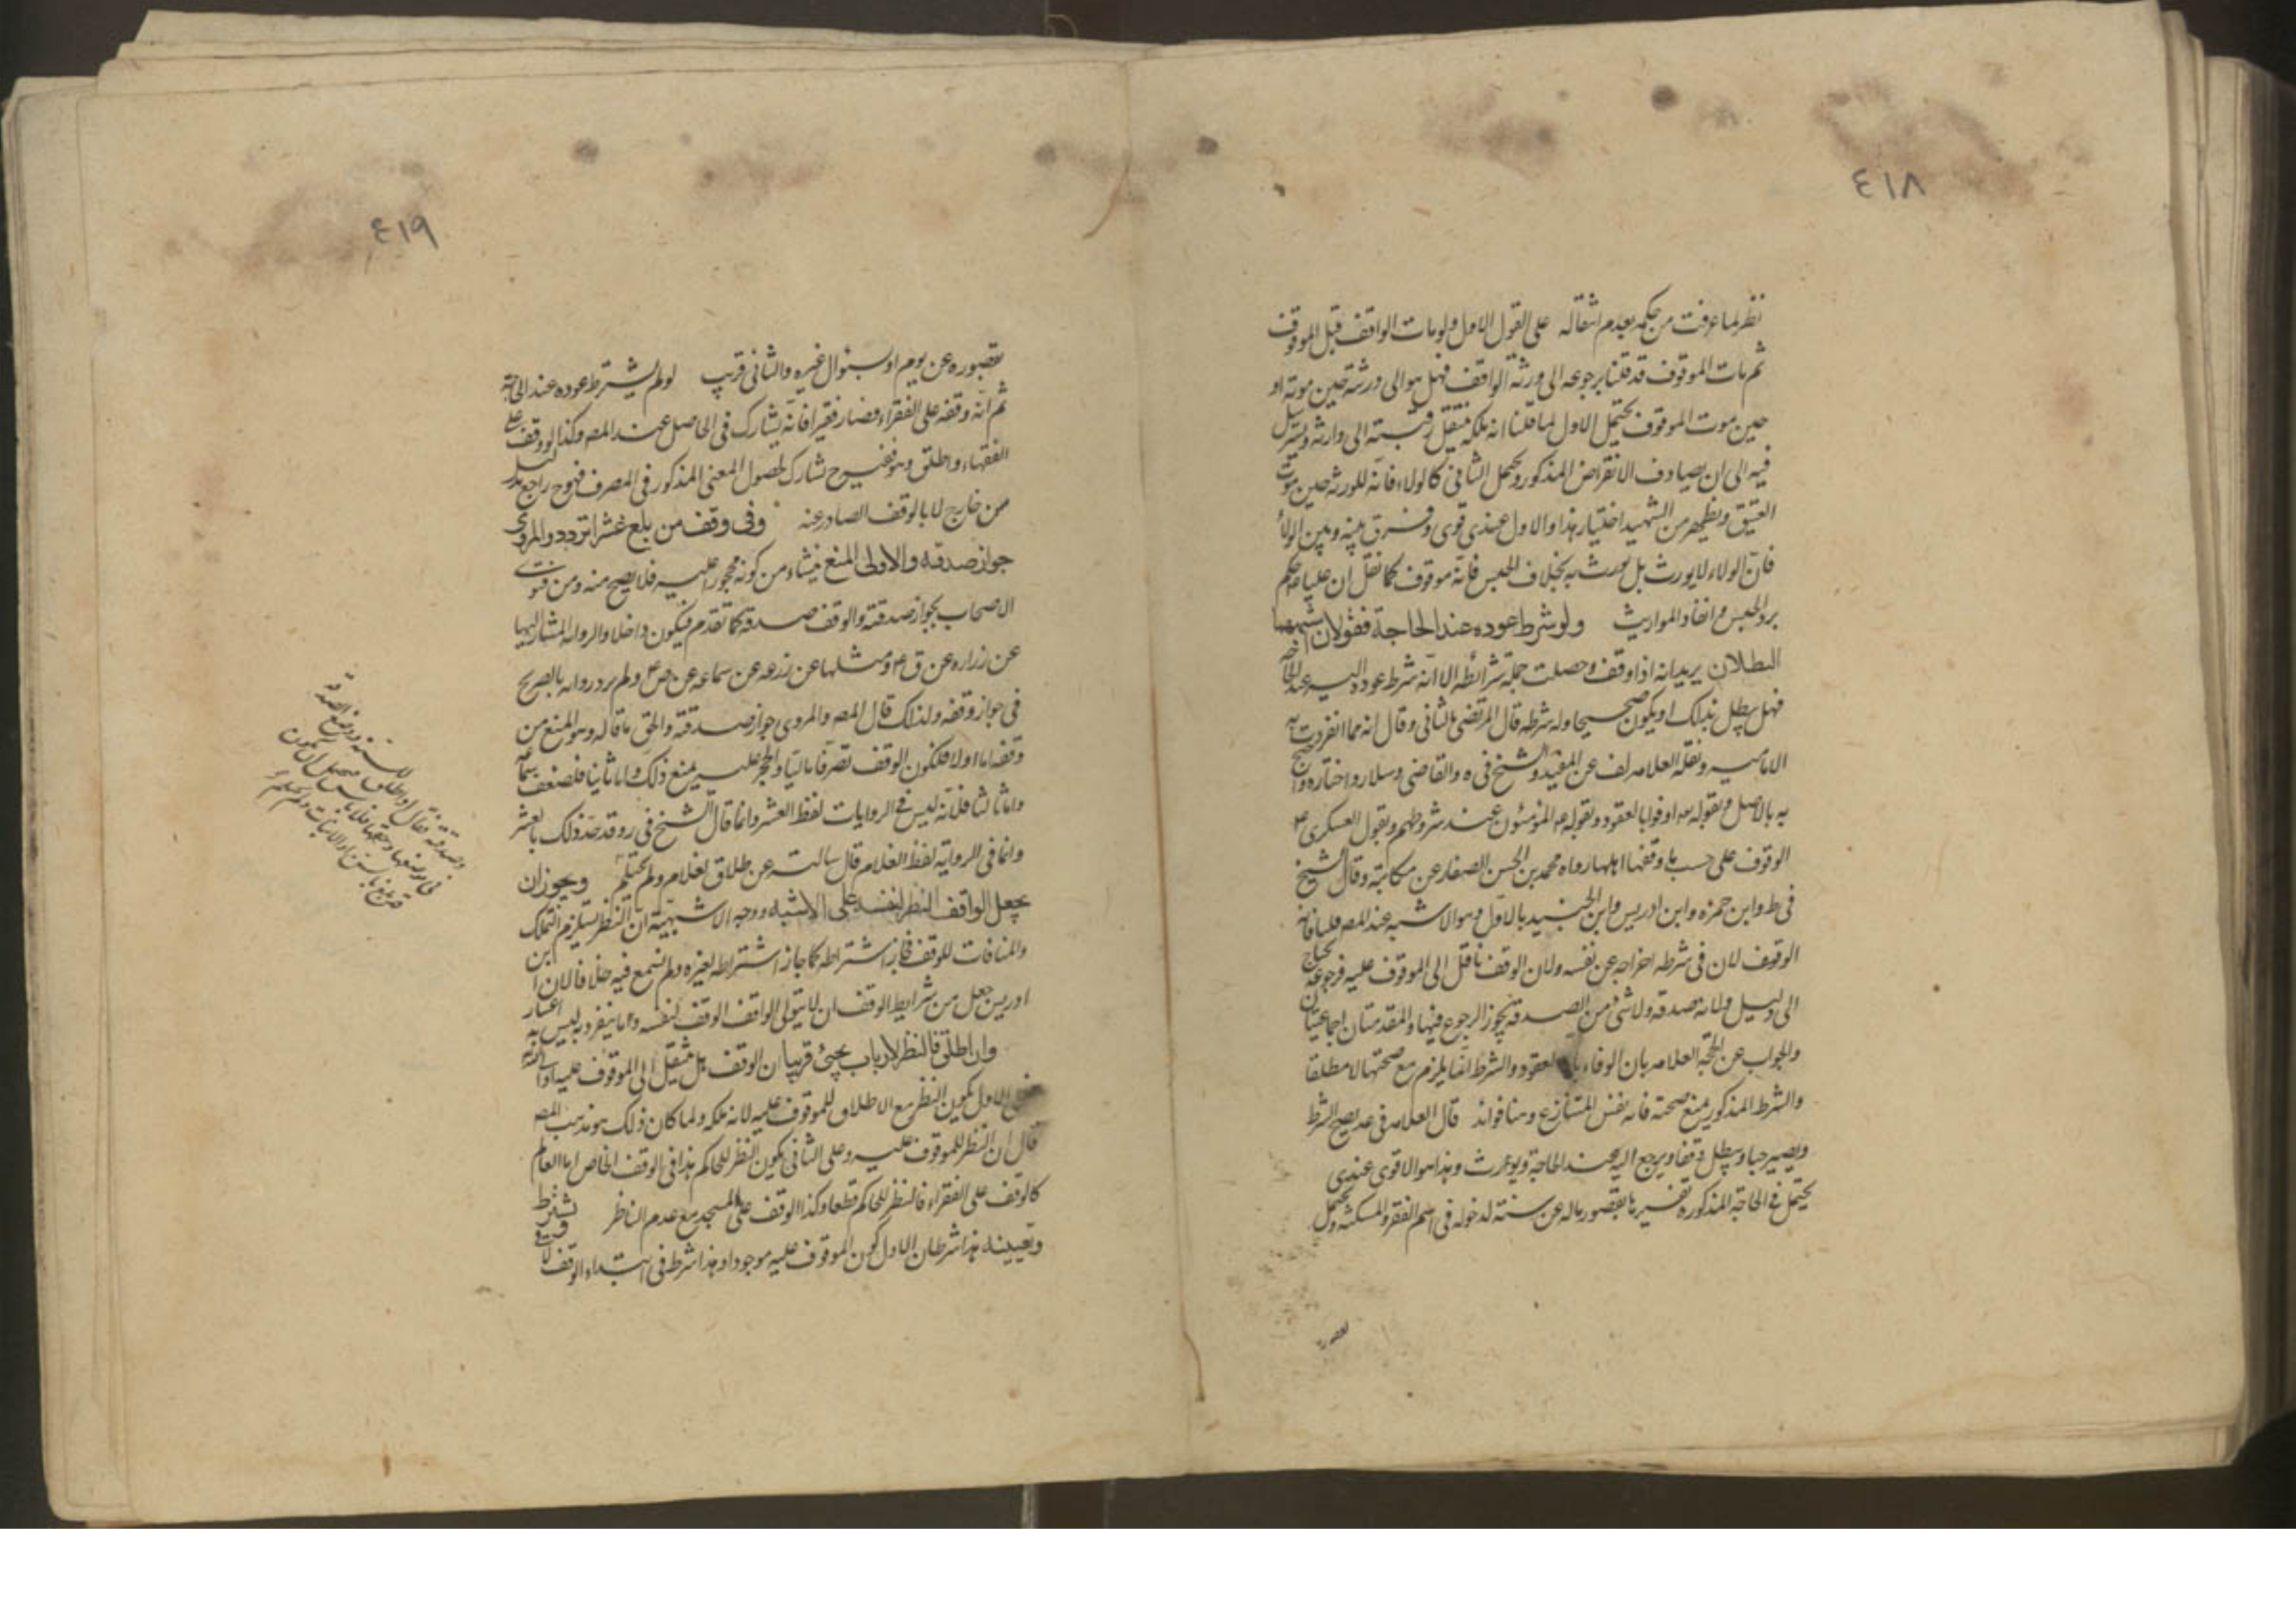 ٤١٨
نظر لما عرفت من حكمه بعدم انتقاله على القول الاول ولو مات الواقف قبل الموقوف
ثم مات الموقوف قد قلنا برجوعه الى ورثة الواقف فهل هو الى ورثته حين موته او
حين موت الموقوف يحتمل الاول لما قلنا انه ملكه فتنتقل رقبته الى وارثه ويسترسل
فيه الى ان يصادف الانقراض المذكور ويحتمل الثاني كالولاء فانه للورثه حين موت
العتيق ويظهر من الشهيد اختيار هذا والاول عندي قوى وفرق بينه وبين الولاء
فان الولاء لا يورث بل يورث به بخلاف الحبس فانه موقوف كما نقل ان عليا ع حكم
برد الحبس وانفاذ المواريث ولو شرط عوده عند الحاجة فقولان اشبههما
البطلان يريد انه اذا وقف وحصلت جملة شرائطه الا انه شرط عوده اليه عند الحاجة
فهل يبطل بذلك او يكون صحيحا وله شرطه قال المرتضى بالثاني وقال انه مما انفردت به
الاماميه ونقله العلامه لف عن المفيد والشيخ في ه والقاضي وسلار واختاره واحتج
به بالاصل وبقوله تعه اوفوا بالعقود وبقوله ع المؤمنون عند شروطهم وبقول العسكرى ع
الوقوف على حسب ما وقفها اهلها رواه محمد بن الحسن الصفار عن مكاتبته وقال الشيخ
في ط وابن حمزه وابن ادريس وابن الجنيد بالاول وهو الاشبه عند المصـ
الوقف لان في شرطه اخراجه عن نفسه ولان الوقف ناقل الى الموقوف عليه فرجوعه يحتاج
الى دليل ولانه صدقه ولا شئ من الصدقه يجوز الرجوع فيها والمقدمتان اجماعيتان
والجواب عن الحجه العلامه بان الوفاء بالعقود والشرط انما يلزم مع صحتها لا مطلقا
والشرط المذكور يمنع صحته فانه نفس المتنازع وهنا فوائد قال العلامه في عد يصح الشرط
ويصير حبسا ويبطل وقفا ويرجع اليه عند الحاجة ويورث وهذا هو الاقوى عندى
يحتمل في الحاجة المذكوره تفسيرها بقصور ماله عن سنته لدخوله في اسم الفقر والمسكنه ويحتمل
٤١٩
بقصوره عن يوم او بسؤال غيره والثاني قريب لو لم يشترط عوده عند الحاجة
ثم انه وقفه على الفقراء فصار فقيرا فانه يشارك في الحاصل عند المصـ وكذا لو وقف على
الفقهاء واطلق وهو فقيه تشارك لحصول المعنى المذكور في المصرف فهو ح راجع بدليل
من خارج لا بالوقف الصادر عنه وفي وقف من بلغ عشرا تردد والمروى
جواز صدقته والاولى المنع ينشاء من كونه محجورا عليه فلا يصح منه ومن فتوى
الاصحاب بجواز صدقته والوقف صدقة كما تقدم فيكون داخلا والروايه المشار اليها
عن زراره عن ق ع ومثلها عن زرعه عن سماعه عن ص ع ولم يرد روايه بالصريح
في جواز وقفه ولذلك قال المصـ والمروى جواز صدقته والحق ما قاله وهو المنع من
وقفه اما اولا فلكون الوقف تصرفا ماليا والحجر عليه يمنع ذلك واما ثانيا فلضعف سماعه
واما ثالثا فلانه ليس في الروايات لفظ العشر وانما قال الشيخ في روقد حد ذلك بالعشر
وانما في الروايه لفظ الغلام قال سالته عن طلاق الغلام ولم يحتلم ويجوز ان
يجعل الواقف النظر لنفسه على الاشبه ووجه الاشبهية ان النظر يستلزم التملك
والمنافات للوقف فجاز اشتراطه كما جاز اشتراطه لغيره ولم نسمع فيه خلافا لان ابن
ادريس جعل من شرايط الوقف ان لا يتولى الواقف الوقف لنفسه وما ينفرد به ليس به اعتبار
وان اطلق فالنظر لارباب يجئ قريبا ان الوقف هل ينتقل الى الموقوف عليه او الى الله
فعلى الاول يكون النظر مع الاطلاق للموقوف عليه لانه ملكه ولما كان ذلك هو مذهب المصـ
قال ان النظر للموقوف عليه وعلى الثاني يكون النظر للحاكم هذا في الوقف الخاص اما العام
كالوقف على الفقراء فالنظر للحاكم قطعا وكذا الوقف على المسجد مع عدم الناظر يشترط
وتعيينه هذا شرطان الاول كون الموقوف عليه موجودا وهذا شرط في ابتداء الوقف
وصدقته فقال اذا طلق للسنه ووضع الصدقه
في موضعها وحقها فلا باس